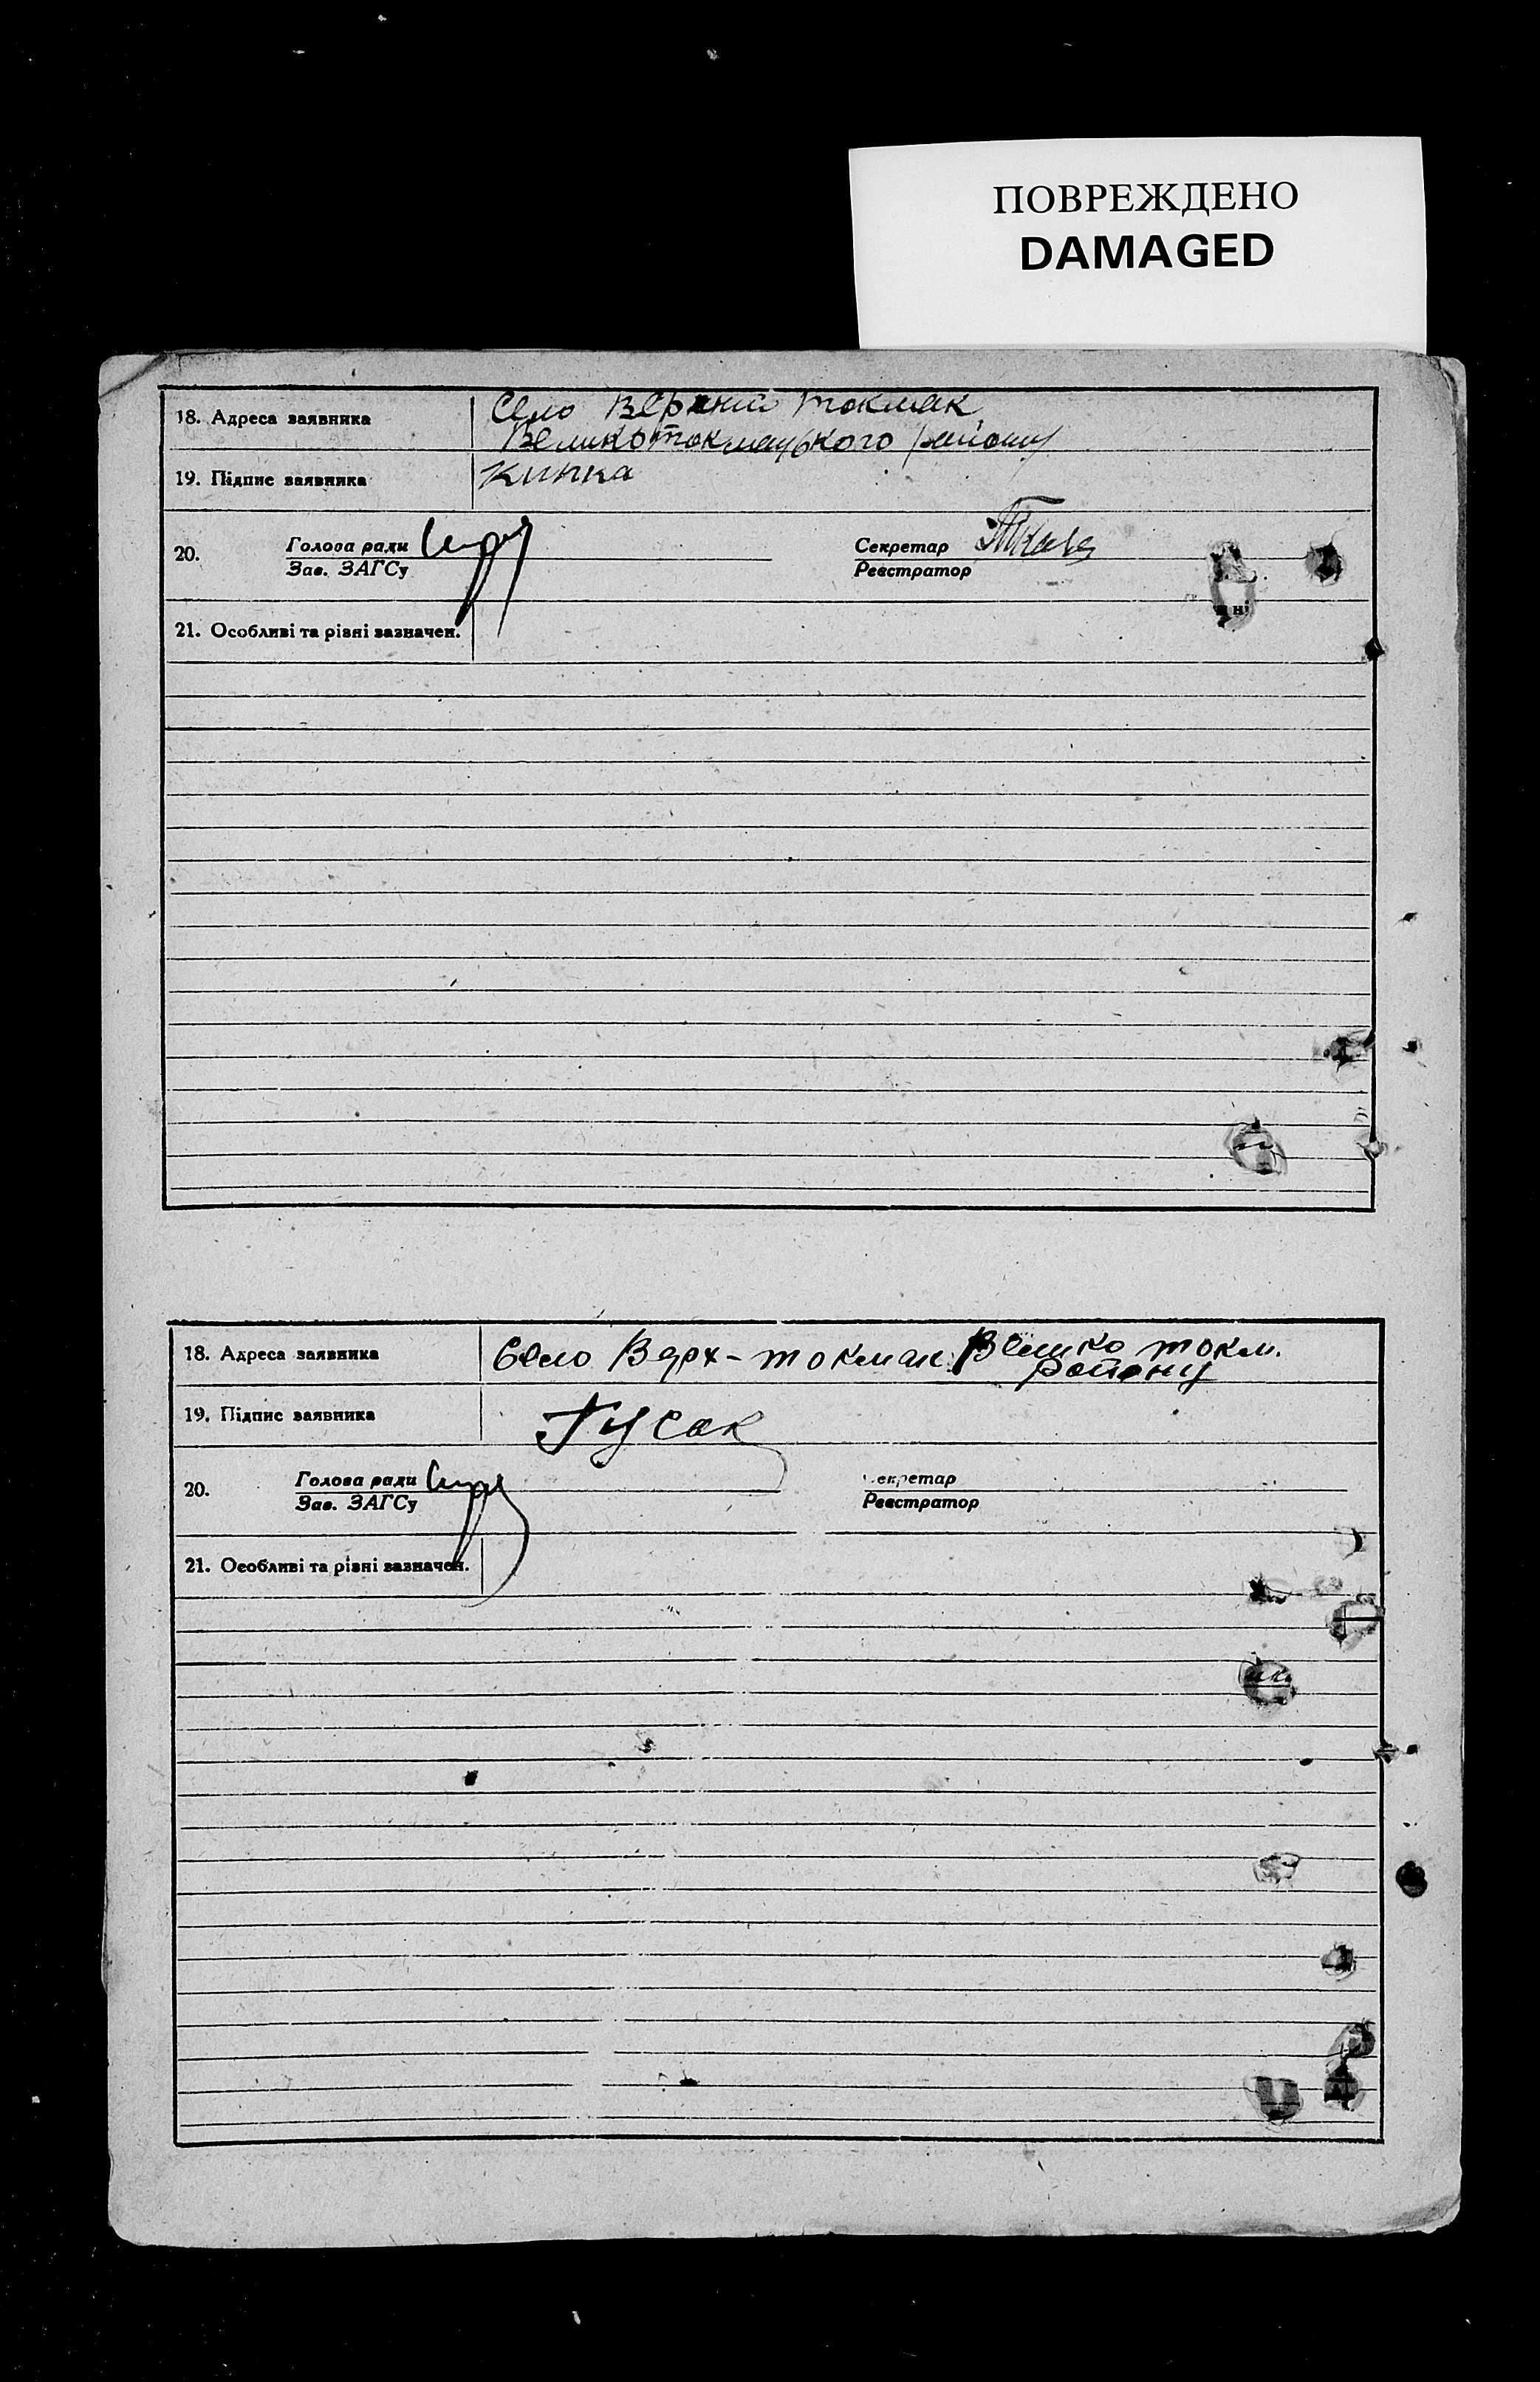 ПОВРЕЖДЕНО
DAMAGED
18. Адреса заявника Село Верхній Токмак
Великотокмацького району
19. Підпис заявника Кипка
20. Голова ради Секретар
Зав. ЗАГСу Реєстратор
21. Особливі та різні зазначен.
18. Адреса заявника Село Верх-токмак Велико токм.
району
19. Підпис заявника Гусак
20. Голова ради екретар
Зав. ЗАГСу Реєстратор
21. Особливі та різні зазначен.